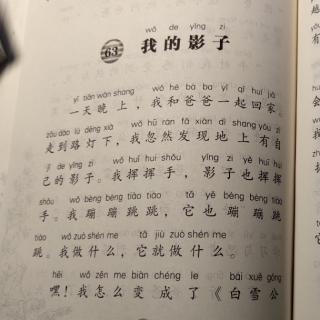 wǒ de yǐng zi
63 我的影子
yì tiān wǎn shang wǒ hé bà ba yì qǐ huí jiā
一天晚上，我和爸爸一起回家。
zǒu dào lù dēng xià wǒ hū rán fā xiàn dì shang yǒu zì
走到路灯下，我忽然发现地上有自
jǐ de yǐng zi wǒ huī huī shǒu yǐng zi yě huī huī
己的影子。我挥挥手，影子也挥挥
shǒu wǒ bèng bèng tiào tiào tā yě bèng bèng tiào
手。我蹦蹦跳跳，它也蹦蹦跳
tiào wǒ zuò shén me tā jiù zuò shén me
跳。我做什么，它就做什么。
hēi wǒ zěn me biàn chéng le bái xuě gōng
嘿！我怎么变成了《白雪公